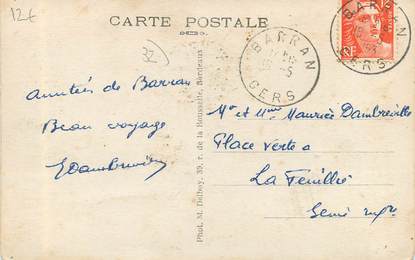 12€
CARTE POSTALE
32)
BARRAN
GERS
BARRAN
GERS
RF
Amitiés de Barran
Beau voyage
Mr et Mme Maurice Dambreville
Place Verte
La Feuillie
Seine
Phot. M. Delboy, 39, r. de la Rousselle, Bordeaux